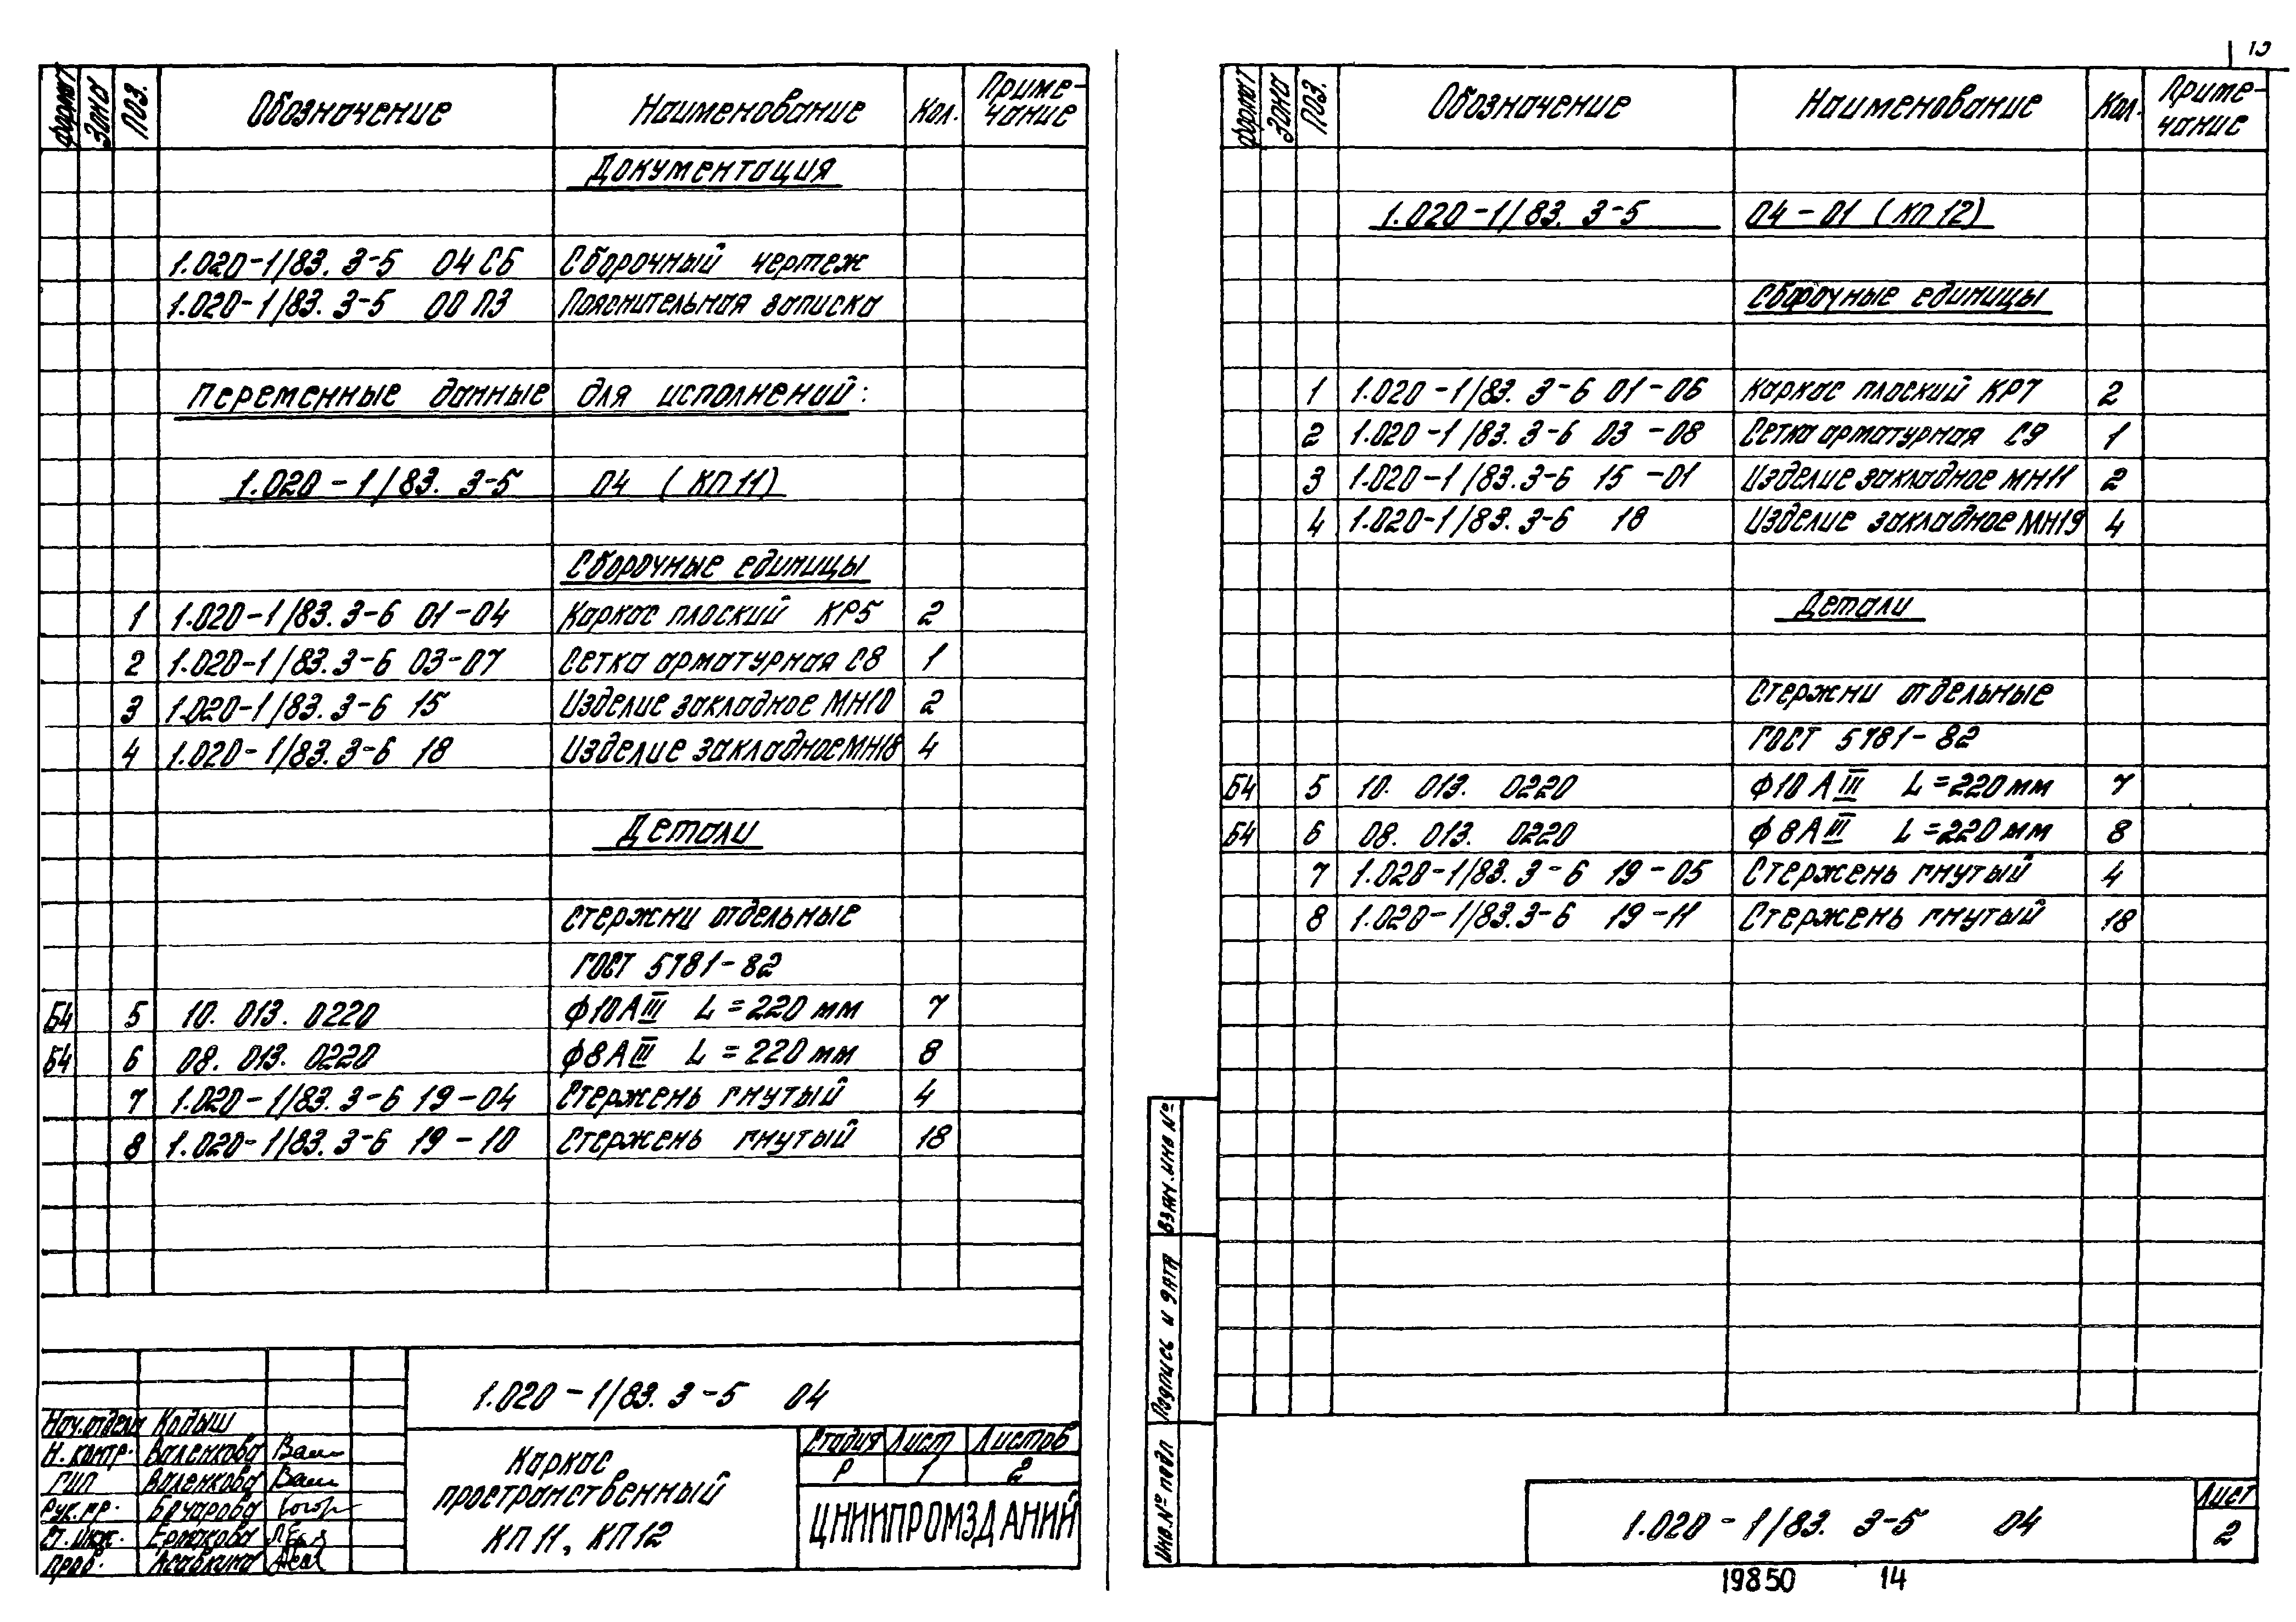 Формат Зона Поз. Обозначение Наименование Кол. Приме-
чание
Документация
1.020-1/83. 3-5 04 СБ Сборочный чертеж
1.020-1/83. 3-5 00 ПЗ Пояснительная записка
Переменные данные для исполнений:
1.020-1/83. 3-5 04 (КП11)
Сборочные единицы
1 1.020-1/83. 3-6 01-04 Каркас плоский КР5 2
2 1.020-1/83. 3-6 03-07 Сетка арматурная С8 1
3 1.020-1/83. 3-6 15 Изделие закладное МН10 2
4 1.020-1/83. 3-6 18 Изделие закладное МН18 4
Детали
Стержни отдельные
ГОСТ 5781-82
Б4 5 10. 013. 0220 ф10АIII L=220 мм 7
Б4 6 08. 013. 0220 ф8АIII L=220 мм 8
7 1.020-1/83. 3-6 19-04 Стержень гнутый 4
8 1.020-1/83. 3-6 19-10 Стержень гнутый 18
1.020-1/83. 3-5 04
Нач.отдела Кодыш
Н. контр. Валенкова
ГИП Валенкова
Рук. гр. Бочарова
Ст. инж. Ермакова
Пров.
Каркас
пространственный
КП11, КП12
Стадия Лист Листов
Р 1 2
ЦНИИПРОМЗДАНИЙ
Формат Зона Поз. Обозначение Наименование Кол. Приме-
чание
1.020-1/83. 3-5 04-01 (КП12)
Сборочные единицы
1 1.020-1/83. 3-6 01-06 Каркас плоский КР7 2
2 1.020-1/83. 3-6 03-08 Сетка арматурная С9 1
3 1.020-1/83. 3-6 15-01 Изделие закладное МН11 2
4 1.020-1/83. 3-6 18 Изделие закладное МН19 4
Детали
Стержни отдельные
ГОСТ 5781-82
Б4 5 10. 013. 0220 ф10АIII L=220 мм 7
Б4 6 08. 013. 0220 ф8АIII L=220 мм 8
7 1.020-1/83. 3-6 19-05 Стержень гнутый 4
8 1.020-1/83. 3-6 19-11 Стержень гнутый 18
Взам. инв №
Подпись и дата
Инв. № подл
1.020-1/83. 3-5 04
Лист
2
19850 14